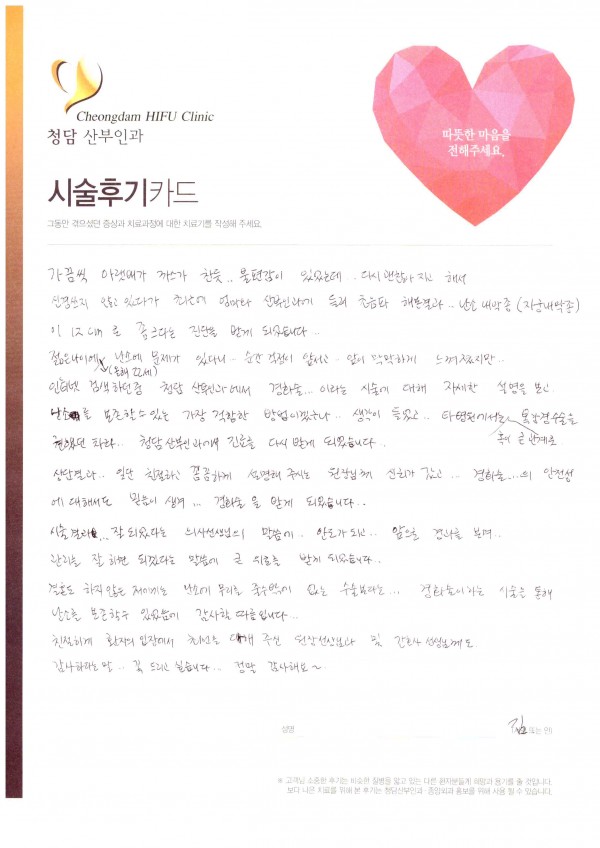 Cheongdam HIFU Clinic
청담 산부인과
따뜻한 마음을
전해주세요.
시술후기카드
그동안 겪으셨던 증상과 치료과정에 대한 치료기를 작성해 주세요.
가끔씩 아랫배가 까스가 찬듯.. 불편감이 있었는데.. 다시 괜찮아 지고 해서
신경쓰지 않고 있다가 최근에 엄마와 산부인과에 들려 초음파 해본결과.. 난소 내막종 (자궁내막종)
이 12cm 로 좀 크다는 진단을 받게 되었습니다..
젊은나이에 (올해 22세) 난소에 문제가 있다니.. 순간 걱정이 앞서고.. 앞이 막막하게 느껴졌지만..
인터넷 검색하던중 청담 산부인과에서 경화술... 이라는 시술에 대해 자세한 설명을 보고.
난소를 보존할수 있는 가장 적합한 방법이겠구나.. 생각이 들었고.. 타병원에서는 혹이 큰관계로 복강경수술을
권했던 터라.. 청담산부인과에서 진료를 다시 받게 되었습니다..
상담결과.. 일단 친절하고 꼼꼼하게 설명해 주시는 원장님께 신뢰가 갔고... 경화술...의 안전성
에 대해서도 믿음이 생겨... 경화술을 받게 되었습니다..
시술결과.. 잘 되었다는 의사선생님의 말씀에.. 안도가 되고.. 앞으로 경과를 보며..
관리를 잘 하면 되겠다는 말씀에 큰 위로를 받게 되었습니다..
결혼도 하지 않은 저에게는 난소에 무리를 줄수밖에 없는 수술보다는... 경화술이라는 시술을 통해
난소를 보존할수 있었음에 감사할 따름입니다..
친절하게 환자의 입장에서 최선을 다해 주신 원장선생님과 및 간호사 선생님께도
감사하다는 말.. 꼭 드리고 싶습니다... 정말 감사해요~
성명 김 (또는 인)
※ 고객님 소중한 후기는 비슷한 질병을 앓고 있는 다른 환자분들께 희망과 용기를 줄 것입니다.
보다 나은 치료를 위해 본 후기는 청담산부인과·중앙외과 홍보를 위해 사용 될 수 있습니다.